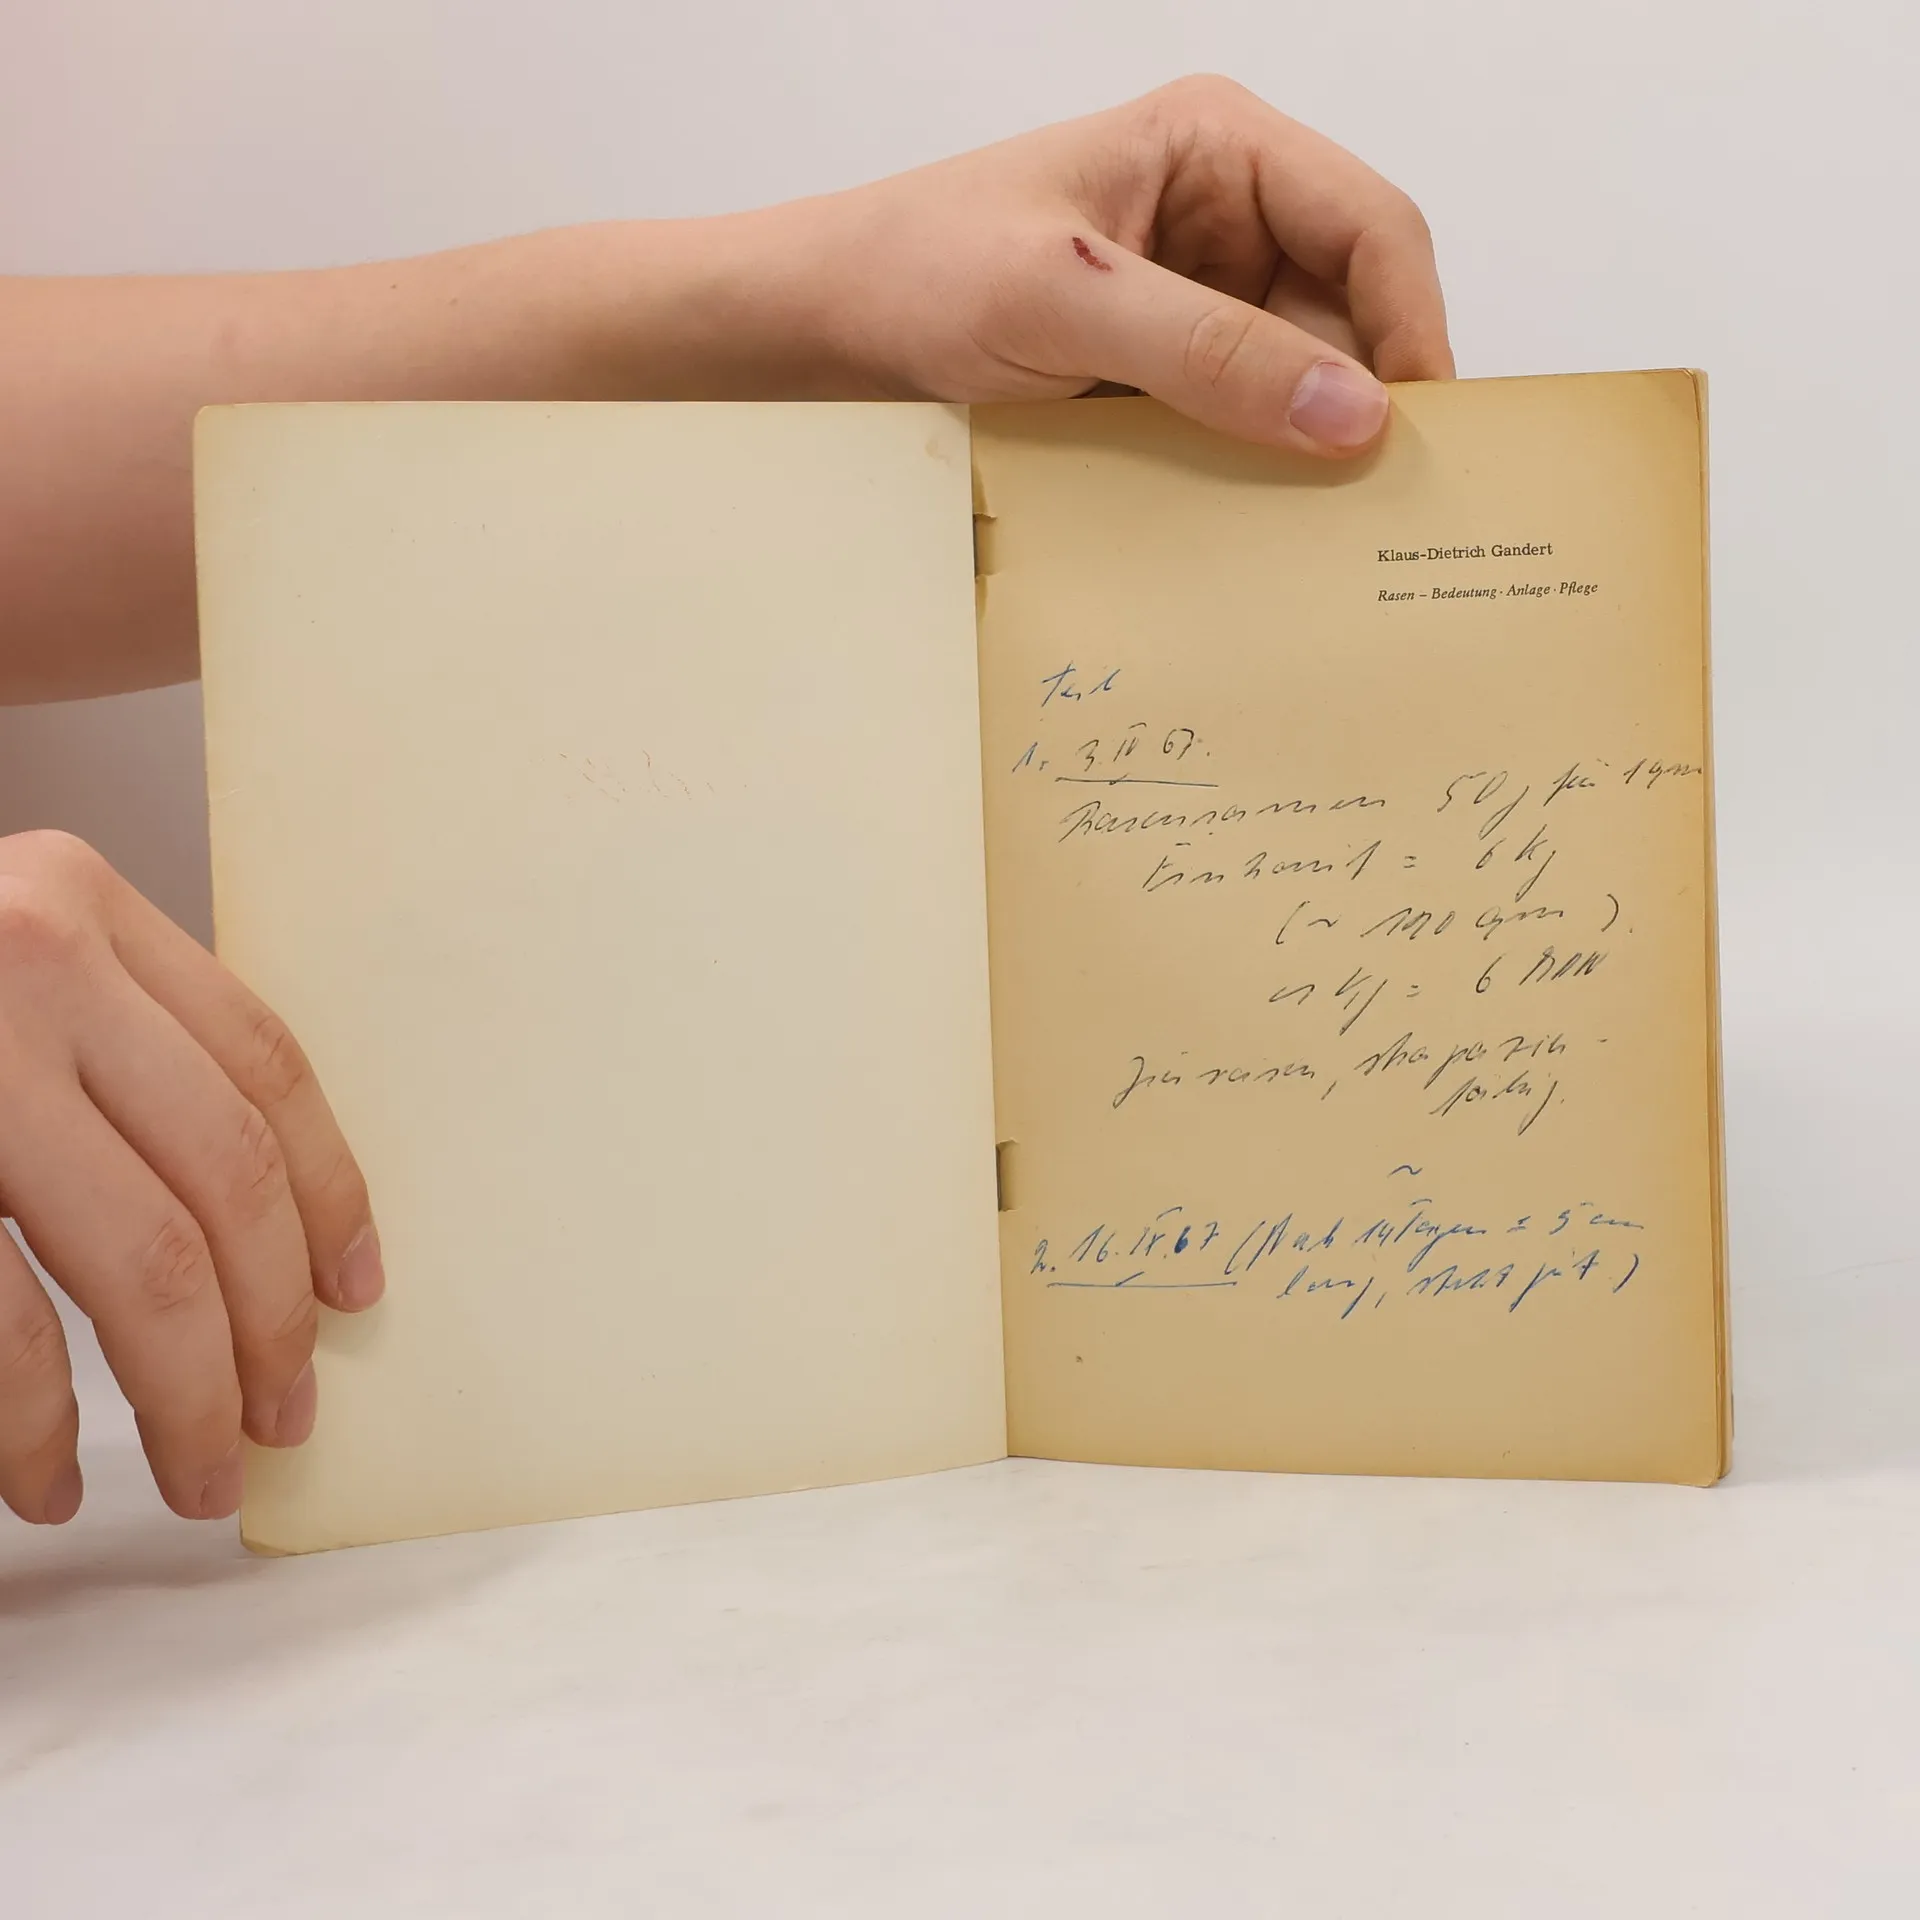 Klaus-Dietrich Gandert
Rasen – Bedeutung · Anlage · Pflege
Teil
1. 3. IV 67.
Rasensamen 50 g für 1 qm
= 6 kg
(~ 100 qm).
kg = 6 MDN
strapazier-
fähig.
~
2. 16. IX. 67 (Nach 14 Tagen = 5 cm
lang, steht gut)